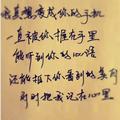 我真想变成你的手机
一直被你握在手里
能听到你的心里话
还能拍下你看到的美丽
时时把我记在心里